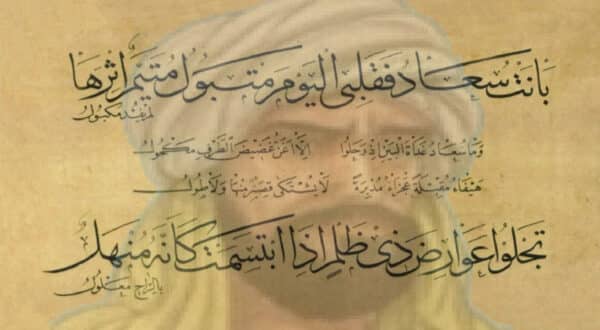 بانت سعاد فقلبى اليوم متبول متيم اثرها
لم يفد مكبول
وما سعاد غداة البين اذ رحلوا الا اغن غضيض الطرف مكحول
هيفاء مقبلة عجزاء مدبرة لا يشتكى قصر منها ولا طول
تجلوا عوارض ذى ظلم اذا ابتسمت كانه منهل
بالراح معلول